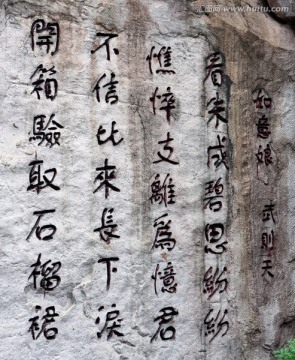 如意娘 武則天
看朱成碧思紛紛
憔悴支離為憶君
不信比來長下淚
開箱驗取石榴裙